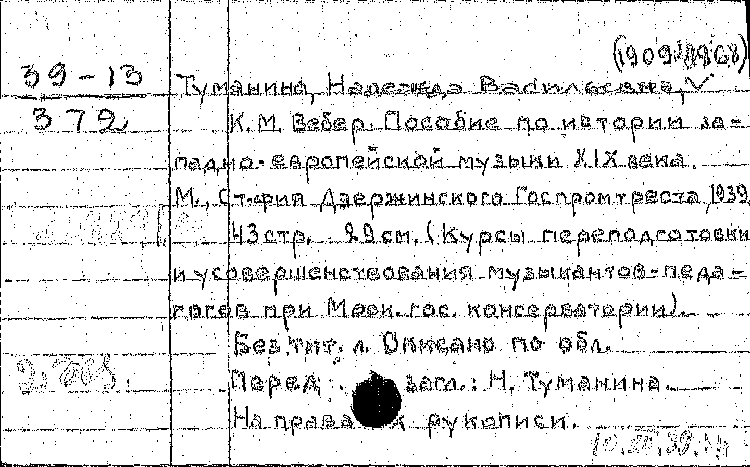 (1909-1968)
39-13
372
Туманина, Надежда Васильевна,
К.М. Вебер. Пособие по истории за-
падно-европейской музыки XIX века.
М., Ст.фил Дзержинского Госпромтреста, 1939
43 стр. 29 см. (Курсы переподготовки
и усовершенствования музыкантов-педа-
гогов при Моск. гос. консерватории).
Без тит. л. Описано по обл.
Перед загл.: Н. Туманина.
На правах рукописи.